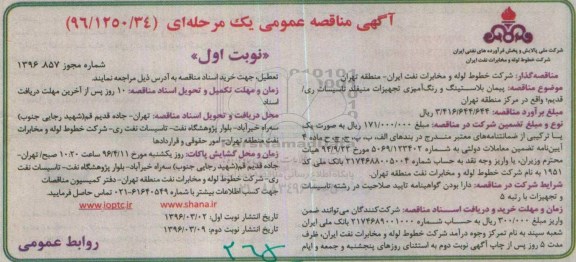 آگهی مناقصه عمومی یک مرحله‌ای (۹۶/۱۲۵۰/۳۴)
«نوبت اول»
شماره مجوز ۱۳۹۶.۸۵۷
شرکت ملی پالایش و پخش فرآورده های نفتی ایران
شرکت خطوط لوله و مخابرات نفت ایران
مناقصه‌گذار: شرکت خطوط لوله و مخابرات نفت ایران- منطقه تهران
موضوع مناقصه: پیمان بلاستینگ و رنگ‌آمیزی تجهیزات منیفلد تاسیسات ری/
قدیم؛ واقع در مرکز منطقه تهران
مبلغ برآورد مناقصه: ۳/۴۱۶/۶۴۴/۶۴۴ ریال
نوع و مبلغ تضمین شرکت در مناقصه: ۱۷۱/۰۰۰/۰۰۰ ریال به صورت یک
یا ترکیبی از ضمانتنامه‌های معتبر مندرج در بندهای الف، ب، پ، ج، ح ماده ۴
آیین‌نامه تضمین معاملات دولتی به شماره ۵۰۶۹/۱۲۳۴۰۲ مورخ ۹۴/۹/۲۲
محترم وزیران، یا واریز وجه نقد به حساب شماره ۲۱۷۴۶۸۸۰۰۵۰۰۴ بانک ملی کد
۱۹۵۱ به نام شرکت خطوط لوله و مخابرات نفت ایران منطقه تهران
شرایط شرکت در مناقصه: دارا بودن گواهینامه تایید صلاحیت در رشته تاسیسات
و تجهیزات با رتبه ۵
زمان و مهلت خرید و دریافت اسناد مناقصه: شرکت‌کنندگان می‌توانند ضمن
واریز مبلغ ۳۰۰/۰۰۰ ریال به حساب شماره ۲۱۷۴۶۸۹۰۰۱۰۰۰ بانک ملی ایران
شعبه سپند به نام تمرکز وجوه درآمد شرکت خطوط لوله و مخابرات نفت ایران، ظرف
مدت ۵ روز پس از چاپ آگهی نوبت دوم به استثنای روزهای پنجشنبه و جمعه و ایام
تعطیل، جهت خرید اسناد مناقصه به آدرس ذیل مراجعه نمایند.
زمان و مهلت تکمیل و تحویل اسناد مناقصه: ۱۰ روز پس از آخرین مهلت دریافت
اسناد
محل دریافت و تحویل اسناد مناقصه: تهران- جاده قدیم قم(شهید رجایی جنوبی)
سه‌راه خیرآباد- بلوار پژوهشگاه نفت- تاسیسات نفت ری- شرکت خطوط لوله و مخابرات
نفت منطقه تهران- امور حقوقی و قراردادها
زمان و محل گشایش پاکات: روز یکشنبه مورخ ۹۶/۴/۱۱ ساعت ۱۰:۲۰ صبح/ تهران-
جاده قدیم قم(شهید رجایی جنوبی) سه‌راه خیرآباد- بلوار پژوهشگاه نفت- تاسیسات نفت
ری- شرکت خطوط لوله و مخابرات نفت منطقه تهران- دفتر کمیسیون مناقصات
جهت کسب اطلاعات بیشتر با شماره ۶۱۶۴۰۵۴۹-۰۲۱ تماس حاصل فرمایید.
www.shana.ir www.ioptc.ir
تاریخ انتشار نوبت اول: ۱۳۹۶/۰۳/۰۲
تاریخ انتشار نوبت دوم: ۱۳۹۶/۰۳/۰۹
روابط عمومی